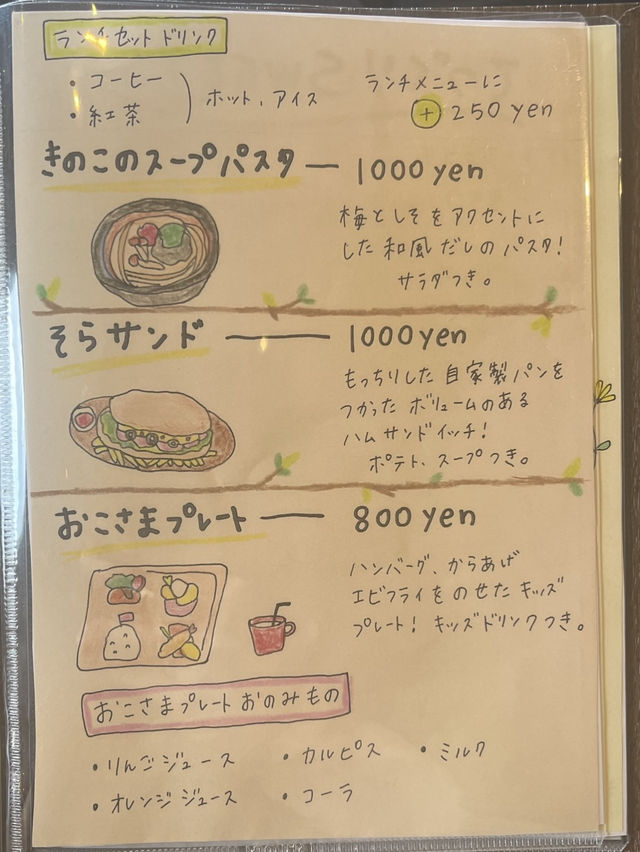 ランチセットドリンク
・コーヒー
・紅茶
ホット、アイス
ランチメニューに
+ 250 yen
きのこのスープパスタ ー 1000 yen
梅としそをアクセントに
した和風だしのパスタ!
サラダつき。
そらサンド ー 1000 yen
もっちりした自家製パンを
つかったボリュームのある
ハムサンドイッチ!
ポテト、スープつき。
おこさまプレート ー 800 yen
ハンバーグ、からあげ
エビフライをのせたキッズ
プレート! キッズドリンクつき。
おこさまプレートおのみもの
・りんごジュース ・カルピス ・ミルク
・オレンジジュース ・コーラ